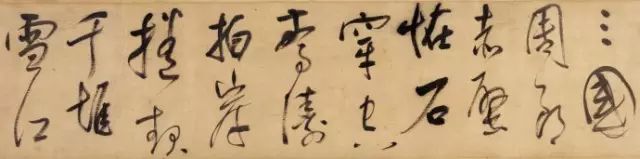 三國
周郎
赤壁
恠石
穿空
驚濤
拍岸
捲起
千堆
雪江